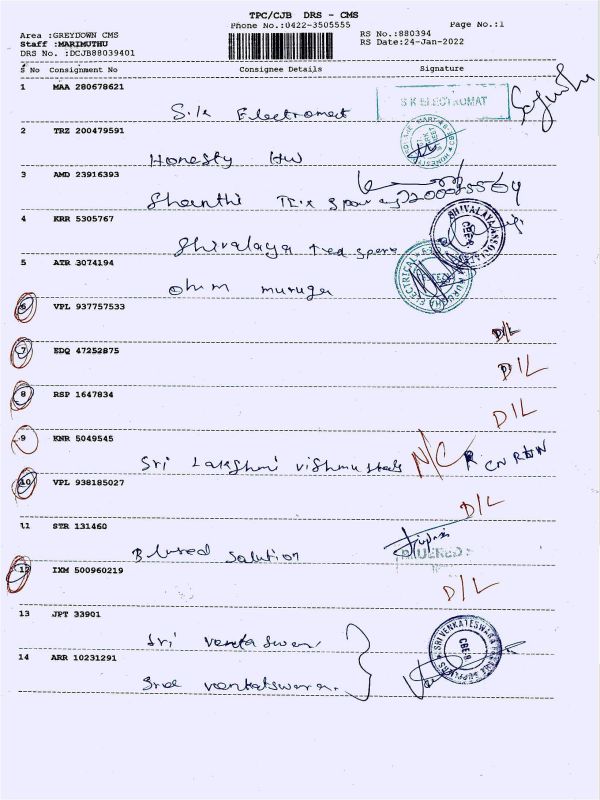 TPC/CJB DRS - CMS
Phone No.:0422-3505555 Page No.:1
Area :GREYDOWN CMS RS No.:880394
Staff :MARIMUTHU RS Date:24-Jan-2022
DRS No. :DCJB88039401
S No Consignment No Consignee Details Signature
1 MAA 280678621
S.K Electromat S K ELECTROMAT
2 TRZ 200479591
Honesty HW
3 AMD 23916393
Shanthi
4 KRR 5305767
Shivalaya SHIVALAYA ASSOCIATES CBE
5 ATR 3074194
ohm muruga ELECTRICAL
6 VPL 937757533
D/L
7 EDQ 47252875
D/L
8 RSP 1647834
D/L
9 KNR 5049545
Sri Lakshmi N/C
10 VPL 938185027
D/L
11 STR 131460
Blused Solution
12 IXM 500960219
D/L
13 JPT 33901
Sri SRI VENKATESWARA
14 ARR 10231291
Sree venkatswara.